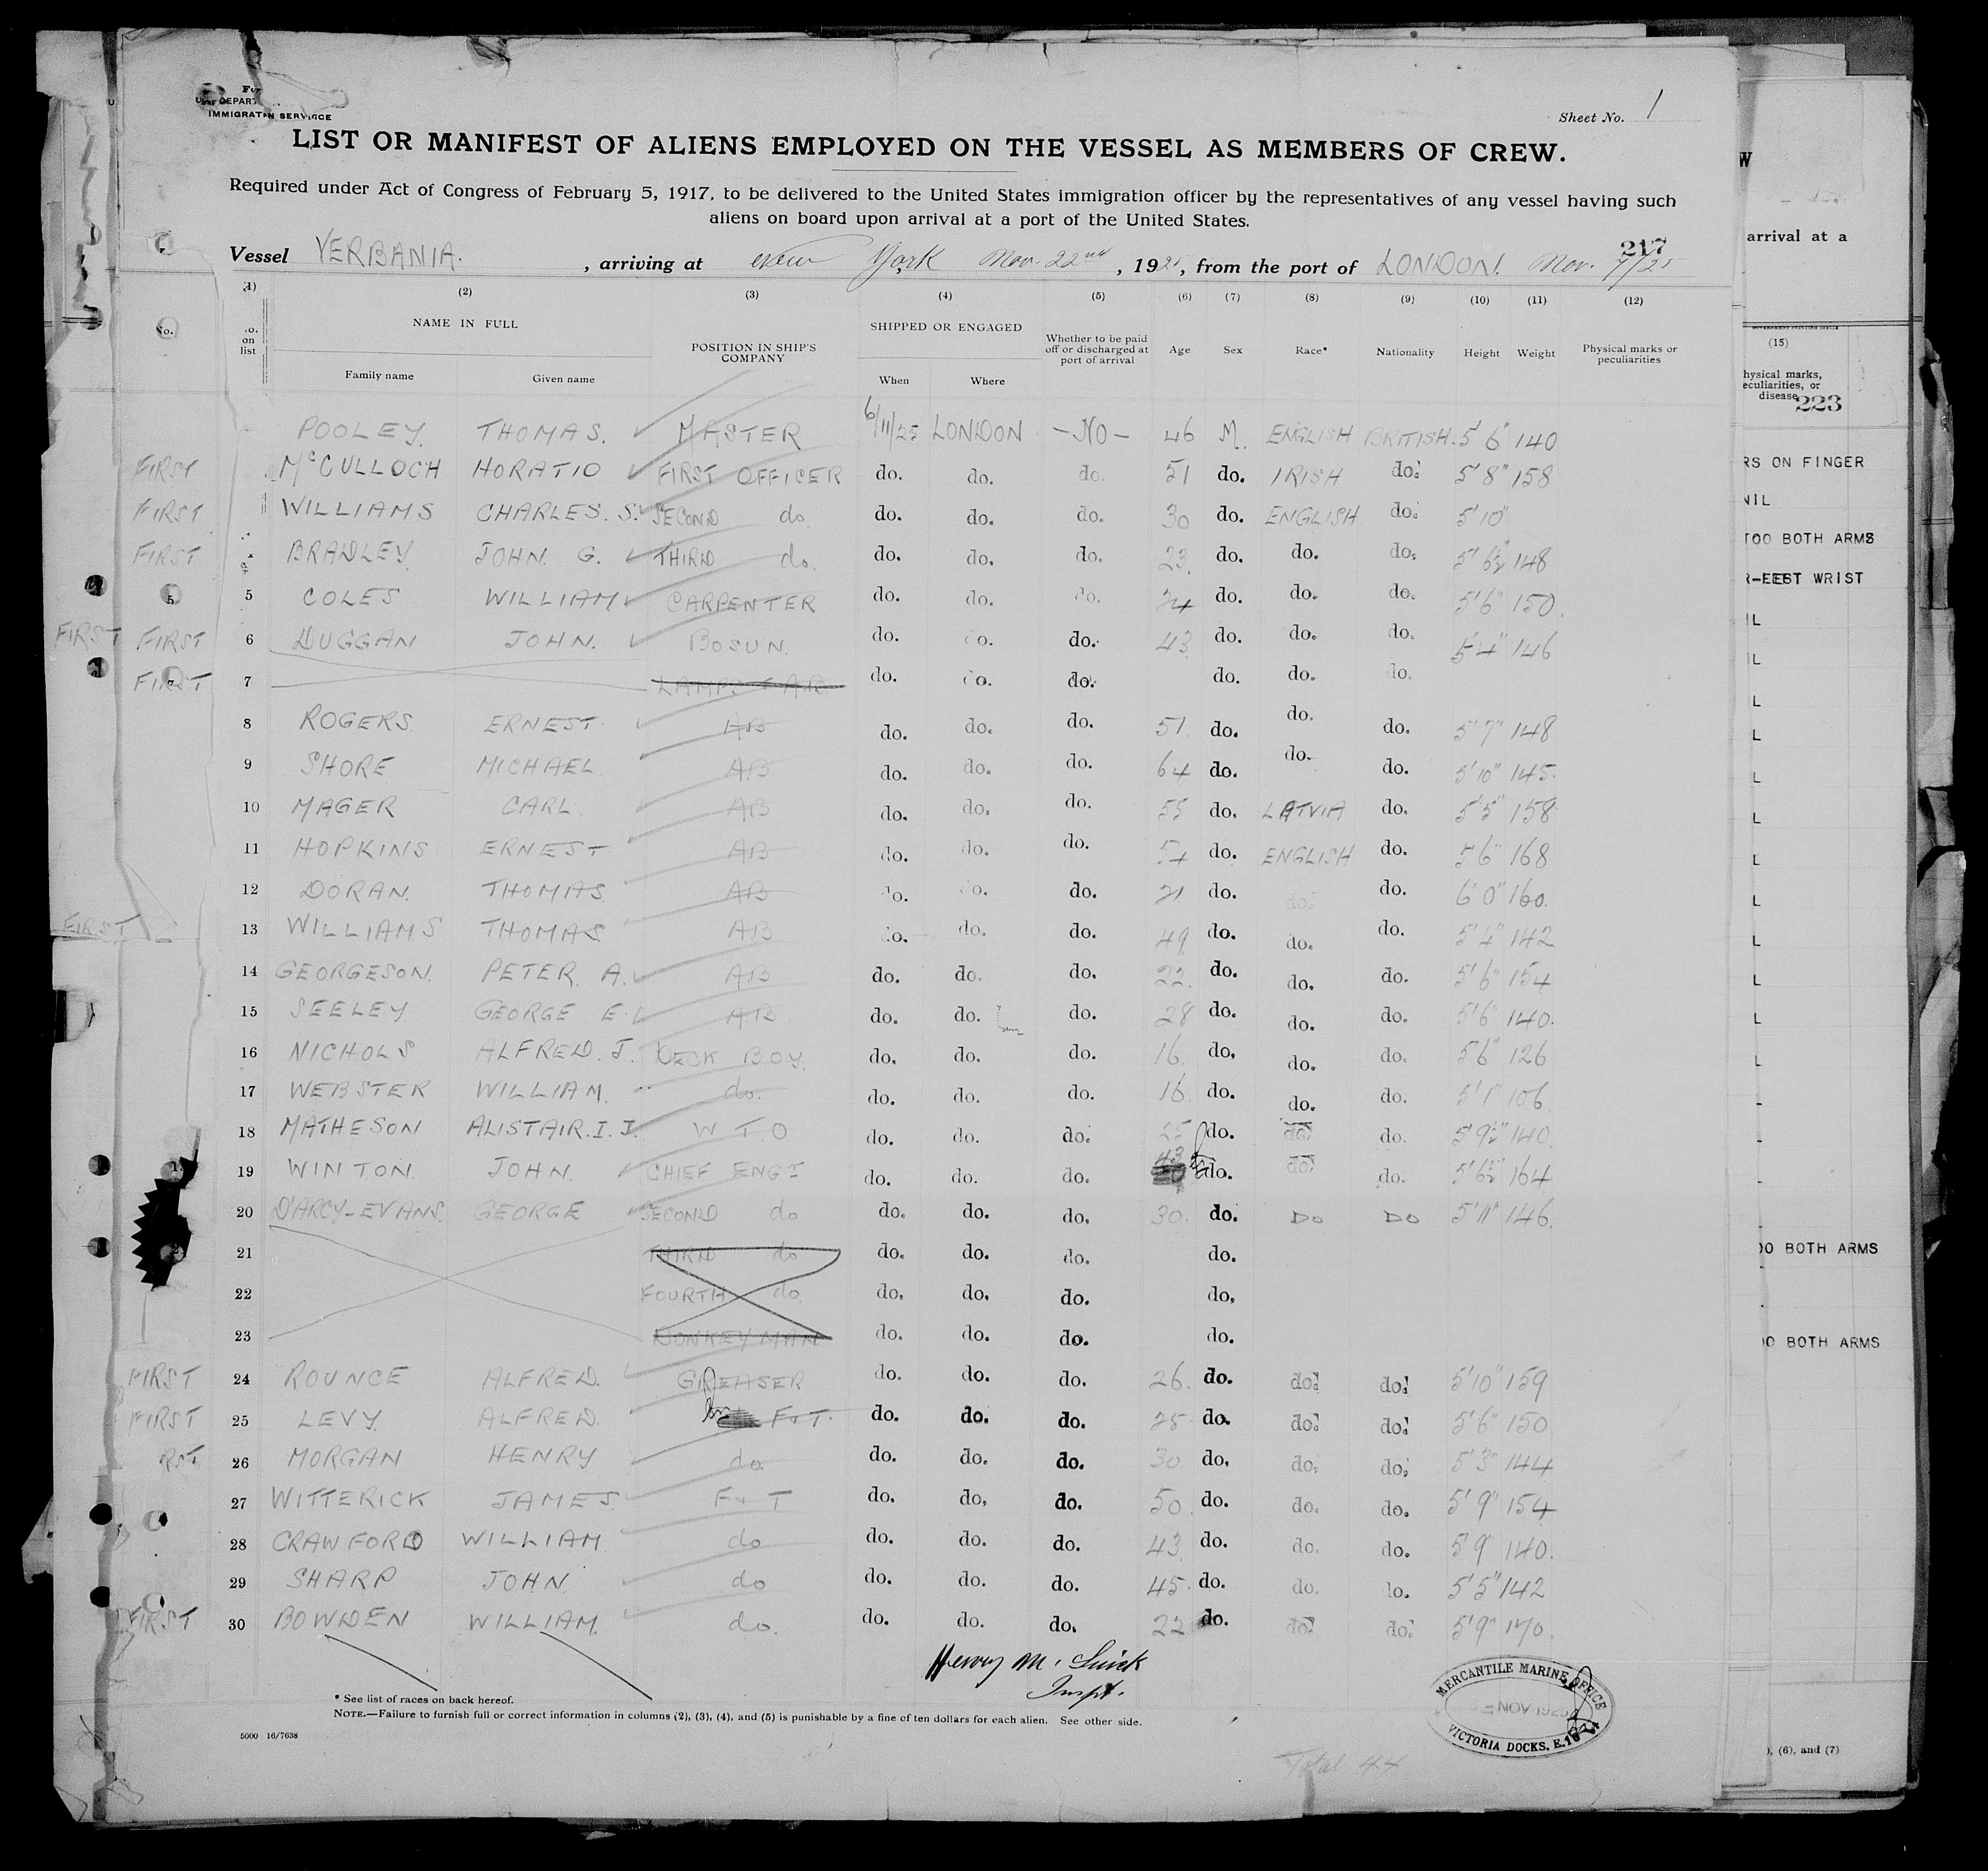 Sheet No. 1
IMMIGRATION SERVICE
LIST OR MANIFEST OF ALIENS EMPLOYED ON THE VESSEL AS MEMBERS OF CREW.
Required under Act of Congress of February 5, 1917, to be delivered to the United States immigration officer by the representatives of any vessel having such
aliens on board upon arrival at a port of the United States.
217
Vessel VERBANIA. , arriving at New York Nov. 22nd , 1925, from the port of LONDON. Nov. 7/25
(1) (2) (3) (4) (5) (6) (7) (8) (9) (10) (11) (12)
No. on list NAME IN FULL Family name Given name POSITION IN SHIP'S COMPANY SHIPPED OR ENGAGED When Where Whether to be paid off or discharged at port of arrival Age Sex Race* Nationality Height Weight Physical marks or peculiarities
POOLEY. THOMAS. MASTER 6/11/25 LONDON -NO- 46 M. ENGLISH BRITISH. 5'6" 140
FIRST McCULLOCH HORATIO FIRST OFFICER do. do. do. 51 do. IRISH do. 5'8" 158
FIRST WILLIAMS CHARLES. S. SECOND do. do. do. do. 30 do. ENGLISH do. 5'10"
FIRST BRADLEY. JOHN. G. THIRD do. do. do. do. 23. do. do. do. 5'6½" 148
5 COLES WILLIAM CARPENTER do. do. do. 24 do. do. do. 5'6" 150.
FIRST FIRST 6 DUGGAN JOHN. BOSUN. do. do. do. 43 do. do. do. 5'4" 146
FIRST 7 LAMPS & AB do. do. do. do. do. do.
8 ROGERS ERNEST AB do. do. do. 51. do. do. do. 5'7" 148
9 SHORE MICHAEL AB do. do. do. 64 do. do. do. 5'10" 145.
10 MAGER CARL AB do. do. do. 55 do. LATVIA do. 5'5" 158
11 HOPKINS ERNEST AB do. do. do. 54 do. ENGLISH do. 5'6" 168
12 DORAN. THOMAS AB do. do. do. 21 do. do. do. 6'0" 160.
FIRST 13 WILLIAMS THOMAS AB do. do. do. 49 do. do. do. 5'4" 142
14 GEORGESON. PETER. A. AB do. do. do. 22. do. do. do. 5'6" 154
15 SEELEY GEORGE E. AB do. do. do. 28 do. do. do. 5'6" 140.
16 NICHOLS ALFRED. J. DECK BOY. do. do. do. 16. do. do. do. 5'6" 126
17 WEBSTER WILLIAM. do. do. do. do. 16. do. do. do. 5'1" 106
18 MATHESON ALISTAIR. I. J. W T O do. do. do. 25 do. do. do. 5'9½" 140.
19 WINTON. JOHN. CHIEF ENGR do. do. do. 43 do. do. do. 5'6½" 164
20 D'ARCY-EVANS. GEORGE SECOND do do. do. do. 30. do. DO DO 5'11" 146.
21 THIRD do do. do. do. do.
22 FOURTH do. do. do. do. do.
23 DONKEYMAN do. do. do. do.
FIRST 24 ROUNCE ALFRED. GREASER do. do. do. 26. do. do. do. 5'10" 159
FIRST 25 LEVY. ALFRED. F & T. do. do. do. 25 do. do. do. 5'6" 150
26 MORGAN HENRY do. do. do. do. 30 do. do. do. 5'3" 144
27 WITTERICK JAMES F & T do. do. do. 50. do. do. do. 5'9" 154
28 CRAWFORD WILLIAM do do. do. do. 43. do. do. do. 5'9 140.
29 SHARP JOHN do do. do. do. 45. do. do. do. 5'5" 142
FIRST 30 BOWDEN WILLIAM. do. do. do. do. 22 do. do. do. 5'9" 140.
Inspt.
* See list of races on back hereof.
NOTE.—Failure to furnish full or correct information in columns (2), (3), (4), and (5) is punishable by a fine of ten dollars for each alien. See other side.
5000 16/7638
MERCANTILE MARINE OFFICE
NOV 1925
VICTORIA DOCKS, E.16
Total 44
W
arrival at a
(15)
223
RS ON FINGER
NIL
TOO BOTH ARMS
WRIST
OO BOTH ARMS
OO BOTH ARMS
), (6), and (7)